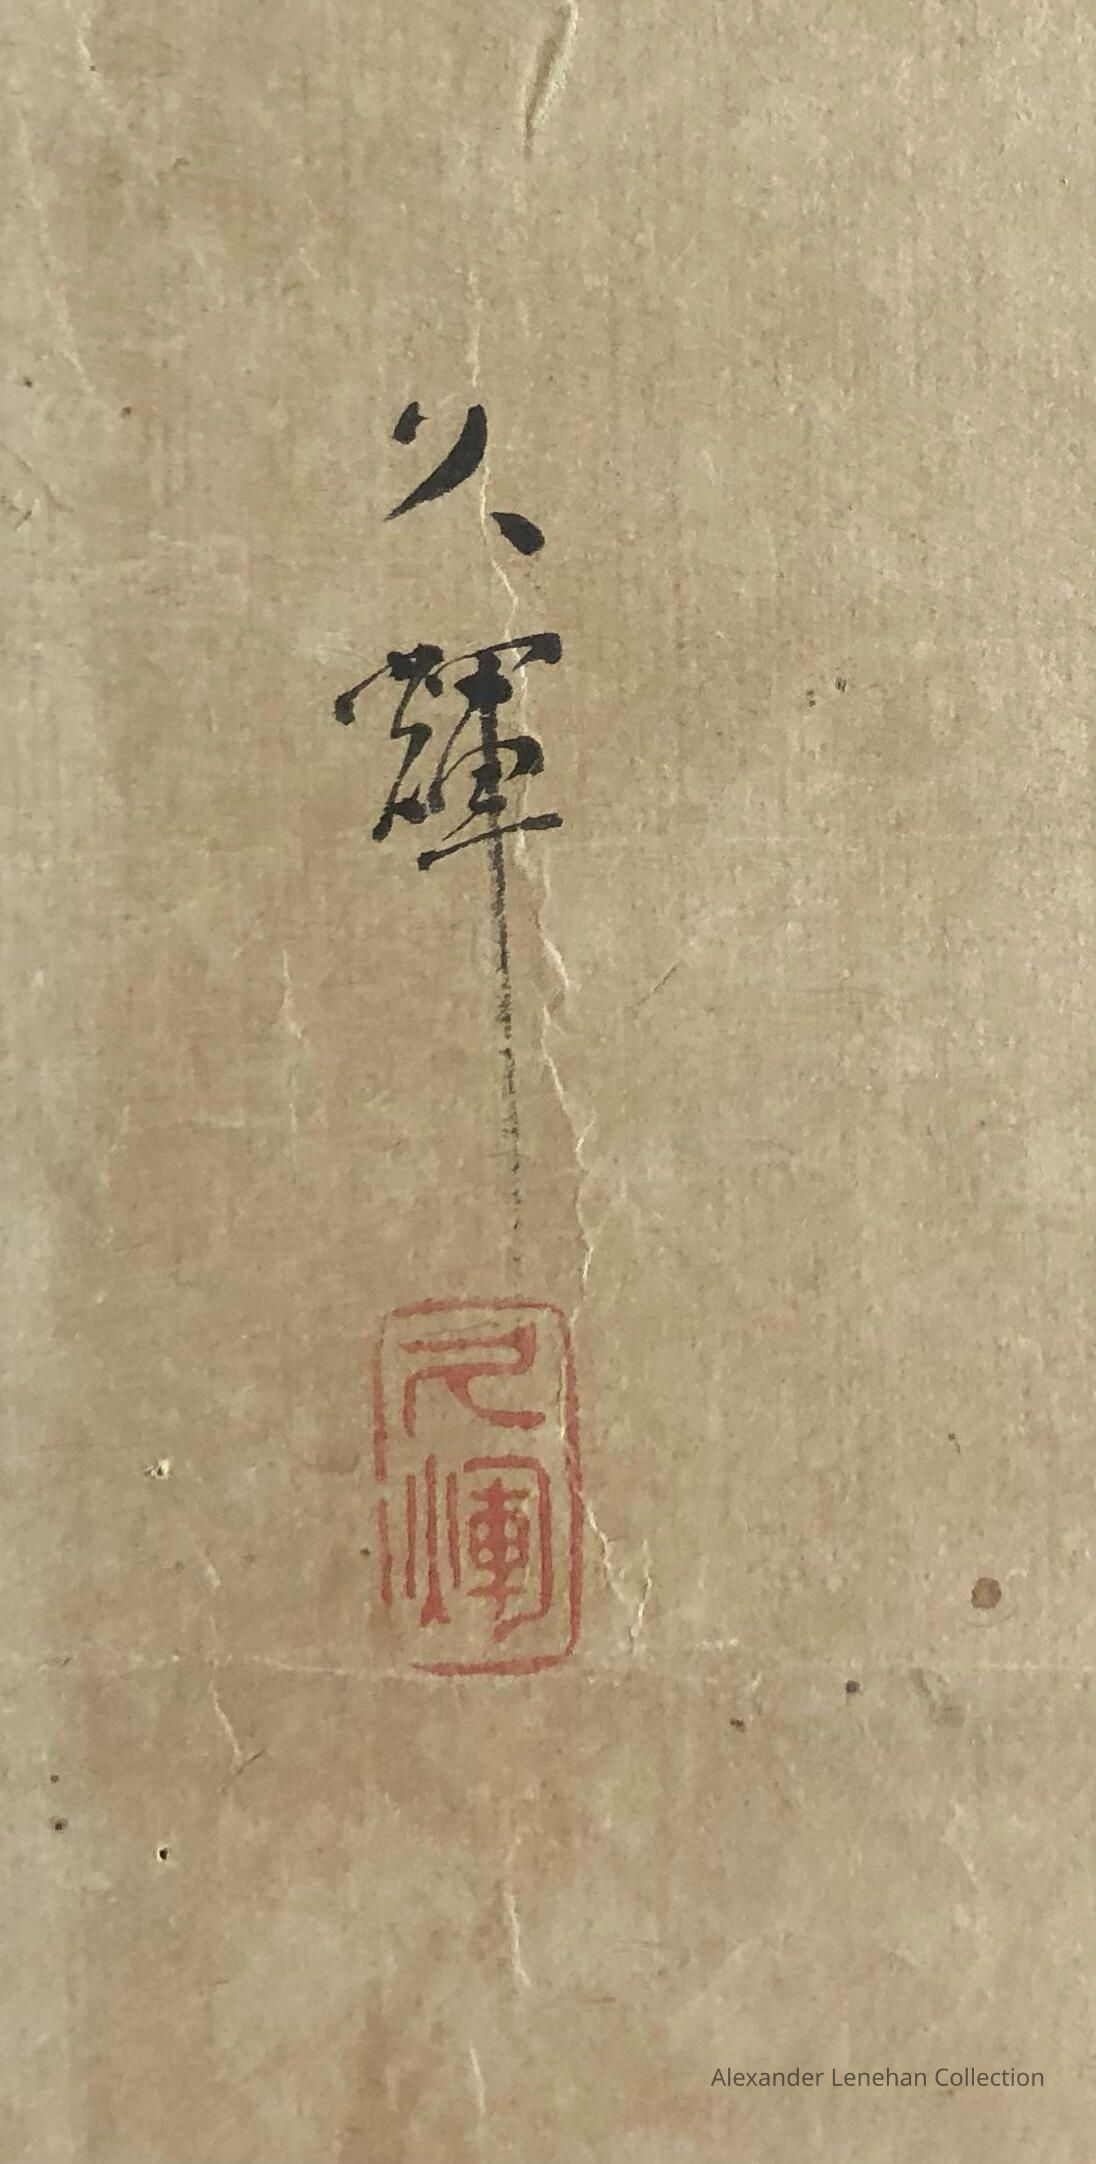 久輝
久輝
Alexander Lenehan Collection